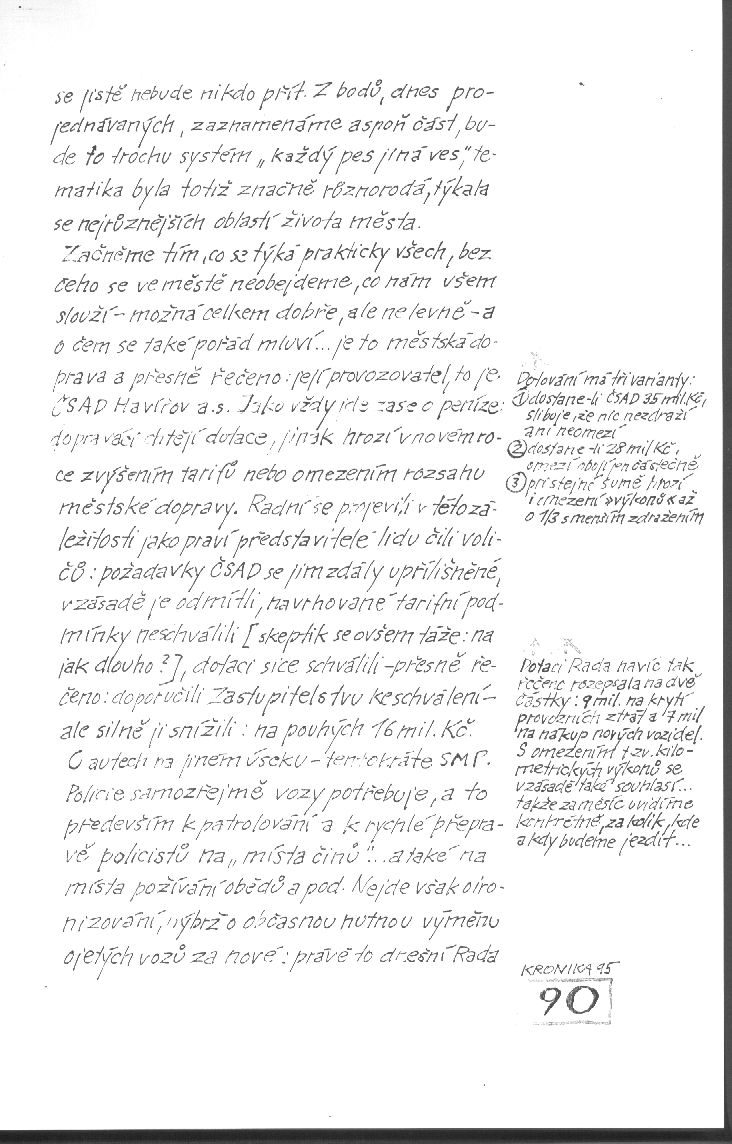 se jistě nebude nikdo přít. Z bodů, dnes pro-
jednávaných, zaznamenáme aspoň část, bu-
de to trochu systém „každý pes jiná ves," te-
matika byla totiž značně různorodá, týkala
se nejrůznějších oblastí života města.
Začněme tím, co se týká prakticky všech, bez
čeho se ve městě neobejdeme, co nám všem
slouží - možná celkem dobře, ale ne levně - a
o čem se také pořád mluví... je to městská do-
prava a přesně řečeno: její provozovatel, to je
ČSAD Havířov a.s. Jako vždy jde zase o peníze:
dopraváci chtějí dotace, jinak hrozí v novém ro-
ce zvýšením tarifů nebo omezením rozsahu
městské dopravy. Radní se projevili v této zá-
ležitosti jako praví představitelé lidu čili voli-
čů: požadavky ČSAD se jim zdály upřílišněné,
v zásadě je odmítli, navrhované tarifní pod-
mínky neschválili [skeptik se ovšem táže: na
jak dlouho?], dotaci sice schválili - přesně ře-
čeno: doporučili Zastupitelstvu ke schválení -
ale silně ji snížili: na pouhých 16 mil. Kč.
O autech na jiném úseku - tentokráte SMP.
Policie samozřejmě vozy potřebuje, a to
především k patrolování a k rychlé přepra-
vě policistů na „místa činů"... a také na
místa požívání obědů a pod. Nejde však o iro-
nizování, nýbrž o občasnou nutnou výměnu
ojetých vozů za nové: právě to dnešní Rada
Dotování má tři varianty:
① dostane-li ČSAD 35 mil. Kč,
slibuje, že nic nezdraží
ani neomezí
② dostane-li 28 mil Kč,
omezí obojí jen částečně
③ při stejné sumě hrozí
i omezení »výkonů« až
o 1/3 s menším zdražením
Dotaci Rada navíc tak
řečeno rozepsala na dvě
částky: 9 mil. na krytí
provozních ztrát a 7 mil
na nákup nových vozidel.
S omezením tzv. kilo-
metrických výkonů se
v zásadě také souhlasí...
takže za měsíc uvidíme
konkrétně, za kolik, kde
a kdy budeme jezdit...
KRONIKA 95
90